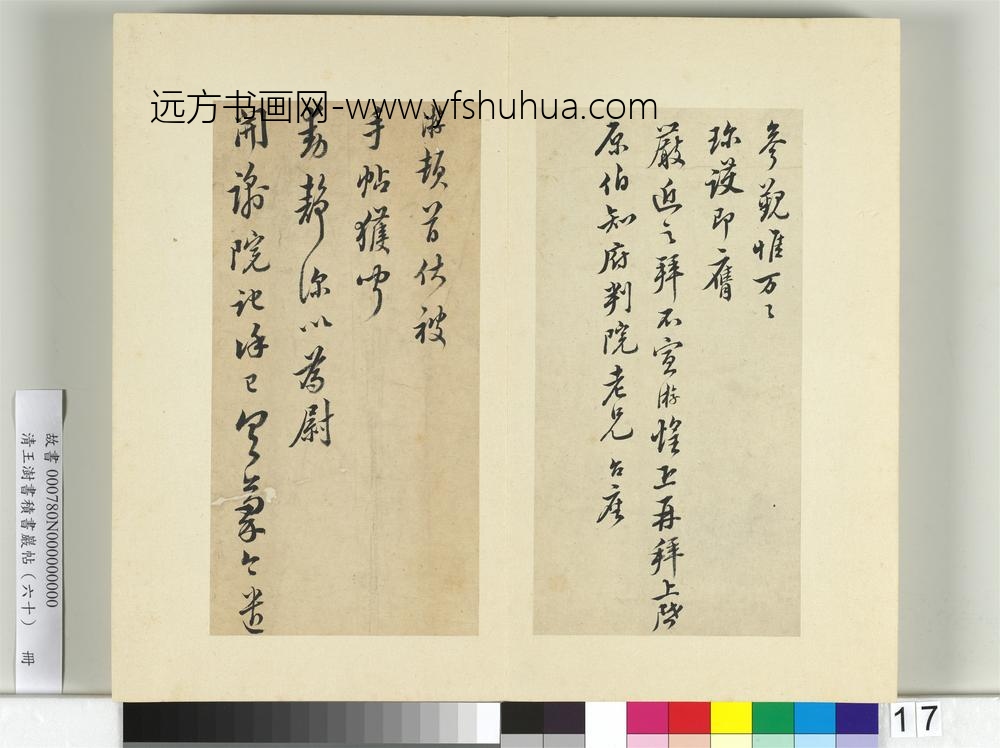 远方书画网-www.yfshuhua.com
參觀惟万々
珎護即膺
嚴近之拜不宣游惶恐再拜上啓
原伯知府判院老兄台座
游頓首伏被
手帖獲聞
動靜深以為慰
開謝院記得已
遣
故書 000780N000000000
清王澍書積書巖帖(六十) 冊
17